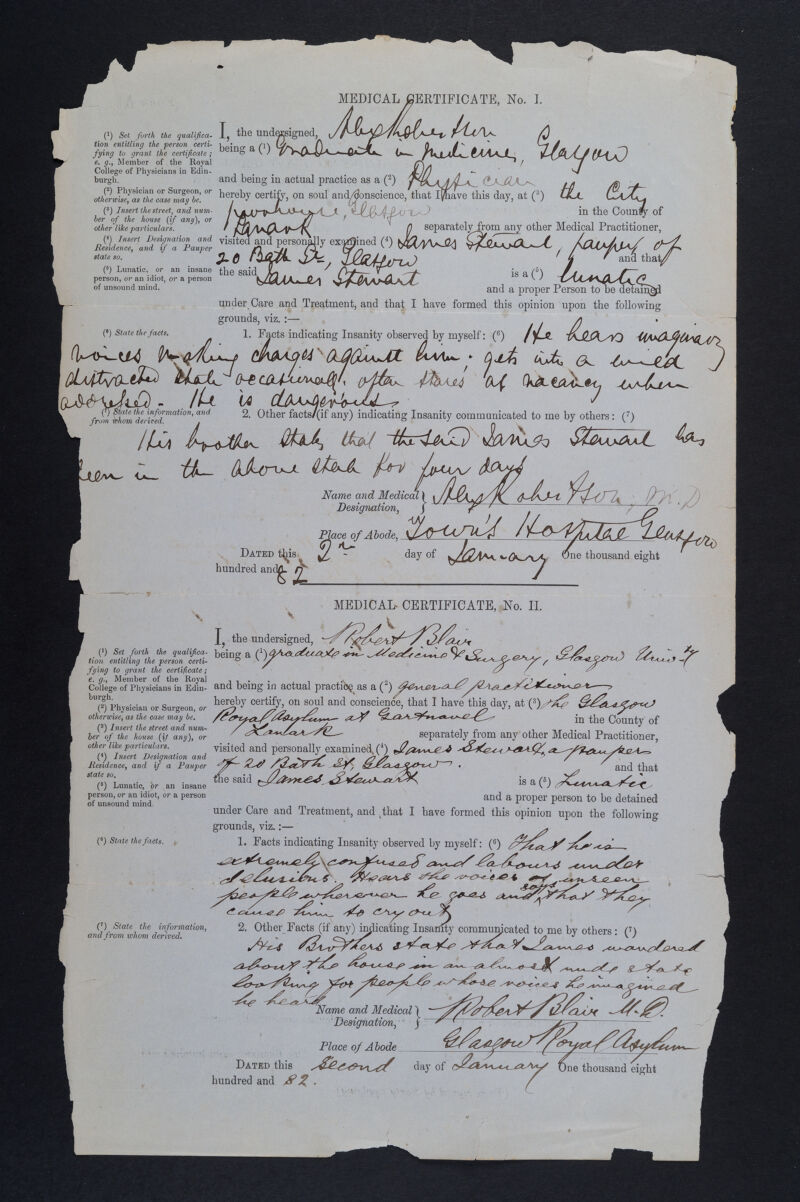 MEDICAL CERTIFICATE, No. I.
(1) Set forth the qualifica-
tion entitling the person certi-
fying to grant the certificate;
e. g., Member of the Royal
College of Physicians in Edin-
burgh.
(2) Physician or Surgeon, or
otherwise, as the case may be.
(3) Insert the street, and num-
ber of the house (if any), or
other like particulars.
(4) Insert Designation and
Residence, and if a Pauper
state so.
(5) Lunatic, or an insane
person, or an idiot, or a person
of unsound mind.
I, the undersigned, Alex Robertson
being a (1) Graduate in Medicine, Glasgow
and being in actual practice as a (2) Physician
hereby certify, on soul and conscience, that I have this day, at (3) the City
poorhouse, Glasgow in the County of
Lanark separately from any other Medical Practitioner,
visited and personally examined (4) James Stewart, pauper of
20 Bath St, Glasgow and that
the said James Stewart is a (5) lunatic
and a proper Person to be detained
under Care and Treatment, and that I have formed this opinion upon the following
grounds, viz.:—
(6) State the facts.
1. Facts indicating Insanity observed by myself: (6) He hears imaginary
voices making charges against him; gets into a wild
distracted state occasionally, often stares at vacancy when
addressed. He is dangerous
(7) State the information, and
from whom derived.
2. Other facts (if any) indicating Insanity communicated to me by others: (7)
His brother states that the said James Stewart has
been in the above state for four days
Name and Medical Designation, Alex Robertson, M.D
Place of Abode, Town's Hospital Glasgow
DATED this 2nd day of January One thousand eight
hundred and 82
MEDICAL CERTIFICATE, No. II.
(1) Set forth the qualifica-
tion entitling the person certi-
fying to grant the certificate;
e. g., Member of the Royal
College of Physicians in Edin-
burgh.
(2) Physician or Surgeon, or
otherwise, as the case may be.
(3) Insert the street and num-
ber of the house (if any), or
other like particulars.
(4) Insert Designation and
Residence, and if a Pauper
state so.
(5) Lunatic, or an insane
person, or an idiot, or a person
of unsound mind.
I, the undersigned, Robert Blair
being a (1) graduate in Medicine & Surgery, Glasgow Univty
and being in actual practice as a (2) general practitioner
hereby certify, on soul and conscience, that I have this day, at (3) the Glasgow
Royal Asylum at Gartnavel in the County of
Lanark separately from any other Medical Practitioner,
visited and personally examined (4) James Stewart, a pauper
of 20 Bath St, Glasgow. and that
the said James Stewart is a (5) Lunatic
and a proper person to be detained
under Care and Treatment, and that I have formed this opinion upon the following
grounds, viz.:—
(6) State the facts.
1. Facts indicating Insanity observed by myself: (6) That he is
extremely confused and labours under
delusions. Hears the voices of unseen
people wherever he goes and says that they
cause him to cry out
(7) State the information,
and from whom derived.
2. Other Facts (if any) indicating Insanity communicated to me by others: (7)
His Brothers state that James wandered
about the house in an almost nude state
looking for people whose voices he imagined
he heard
Name and Medical Designation, Robert Blair M.D.
Place of Abode Glasgow Royal Asylum
DATED this Second day of January One thousand eight
hundred and 82.